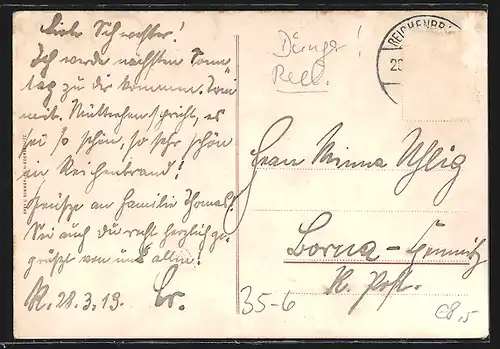 Liebe Schwester!
Ich werde nächsten Sonn-
tag zu dir kommen.
mit. Mütterchen spricht, es
sei so schön, so sehr schön
in Reichenbrand!
Grüße an Familie Thomas!
Sei auch Du recht herzlich ge-
grüßt von uns allen!
R. 28.3.19.
REICHENBR
Frau Minna Uhlig
Borna-Chemnitz
Post.
35-6
€8,5